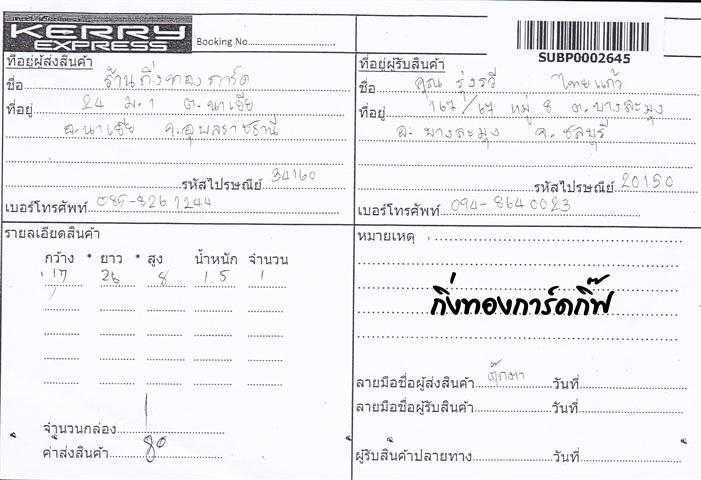 KERRY
EXPRESS
Booking No.
SUBP0002645
ที่อยู่ผู้ส่งสินค้า
ชื่อ ร้านกิ่งทองการ์ด
ที่อยู่ 24 ม.1 ต.นาเยีย
อ.นาเยีย จ.อุบลราชธานี
รหัสไปรษณีย์ 34160
เบอร์โทรศัพท์ 085-826 1244
ที่อยู่ผู้รับสินค้า
ชื่อ คุณ รุ่งรวี ไทยแก้ว
ที่อยู่ 167/67 หมู่ 8 ต.บางละมุง
อ. บางละมุง จ. ชลบุรี
รหัสไปรษณีย์ 20150
เบอร์โทรศัพท์ 094-864 0023
รายละเอียดสินค้า
กว้าง * ยาว * สูง น้ำหนัก จำนวน
17 26 8 1.5 1
จำนวนกล่อง 1
ค่าส่งสินค้า 80
หมายเหตุ :
กิ่งทองการ์ดกิ๊ฟ
ลายมือชื่อผู้ส่งสินค้า ตุ๊กตา วันที่
ลายมือชื่อผู้รับสินค้า วันที่
ผู้รับสินค้าปลายทาง วันที่